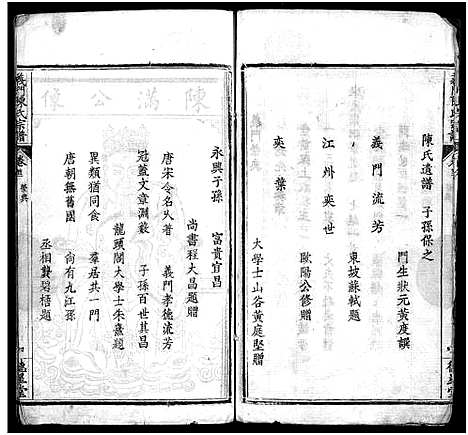 陳氏遺譜 子孫保之
門生狀元黃度譔
義門流芳
東坡蘇軾題
江州奕世
歐陽公修贈
奕葉
大學士山谷黃庭堅贈
永興子孫 富貴宜昌
尚書程大昌題
唐宋令名久著 義門孝德流芳
冠蓋文章淵藪 子孫百世其昌
龍頭閣大學士朱熹題
異類猶同食 羣居共一門
唐朝無舊國 尚有九江孫
丞相龔碧梧題
義門陳氏宗譜
卷首
陳滿公像